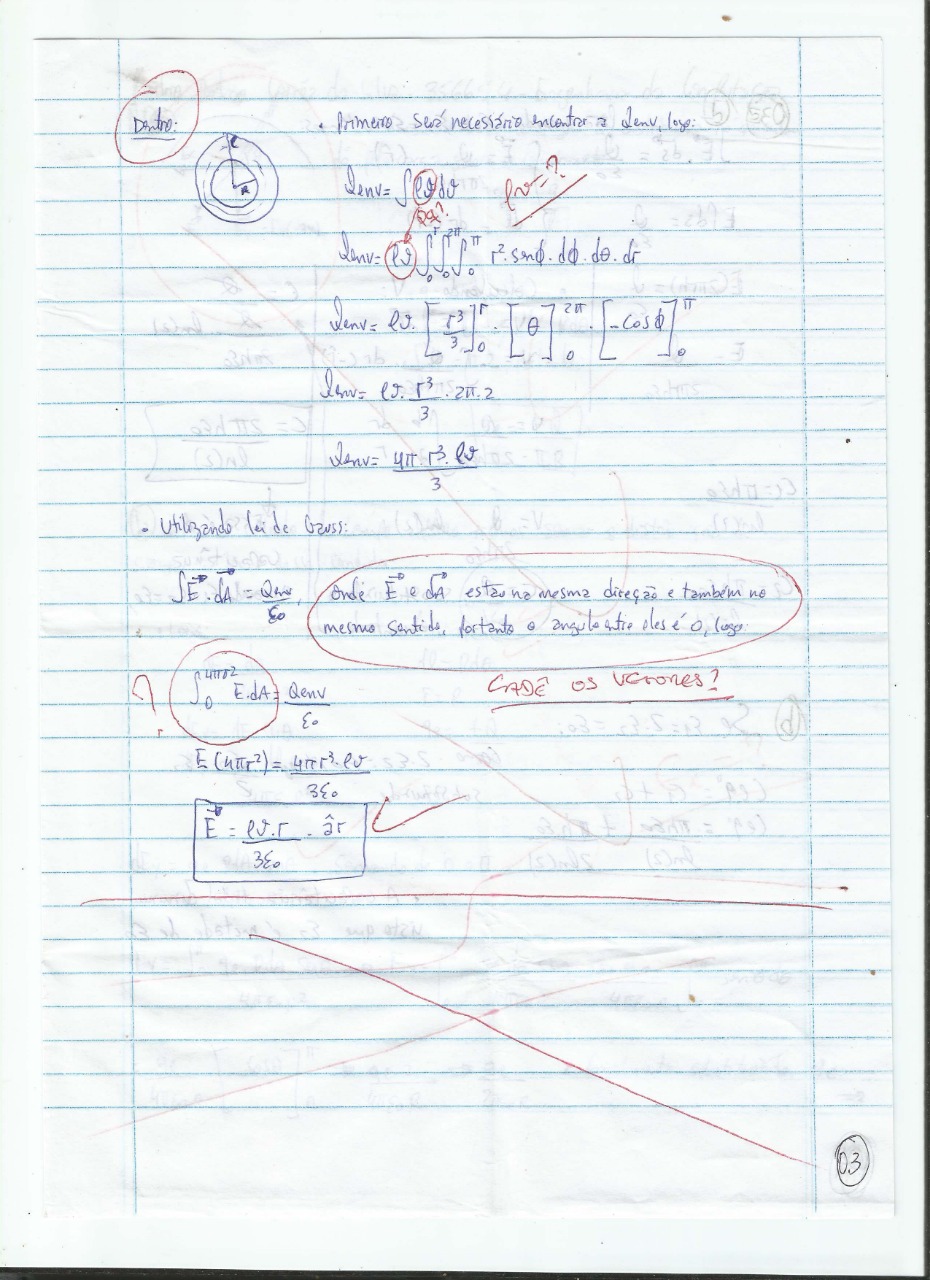 Dentro:
• Primeiro será necessário encontrar a Qenv, logo:
Qenv = ∫ ρv dv
ρv = ?
Qenv = ρv ∫₀^r ∫₀^2π ∫₀^π r². senϕ. dϕ. dθ. dr
Qenv = ρv. [r³/3]₀^r . [θ]₀^2π . [-cosϕ]₀^π
Qenv = ρv. r³/3 . 2π. 2
Qenv = 4π. r³. ρv/3
• Utilizando lei de Gauss:
∫E⃗. dA⃗ = Qenv/ε₀, Onde E⃗ e dA⃗ estão na mesma direção e também no
mesmo sentido, portanto o ângulo entre eles é 0, logo:
? ∫₀^4πr² E. dA = Qenv/ε₀
CADÊ OS VETORES?
E (4πr²) = 4πr³. ρv/3ε₀
E⃗ = ρv. r/3ε₀ . âr
03